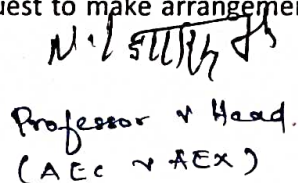 uest to make arrangemen
Professor & Head.
(AEC & AEX)